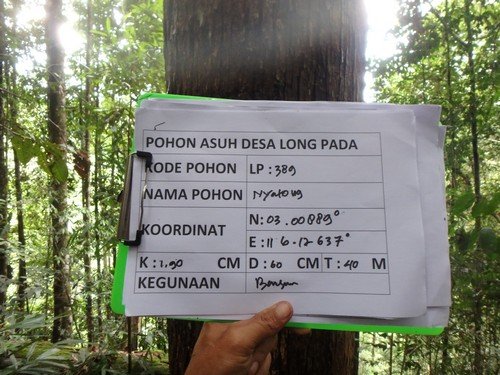 POHON ASUH DESA LONG PADA
KODE POHON LP : 389
NAMA POHON Nyatoug
KOORDINAT N: 03.00889°
E: 116.12637°
K : 1,90 CM D : 60 CM T : 40 M
KEGUNAAN